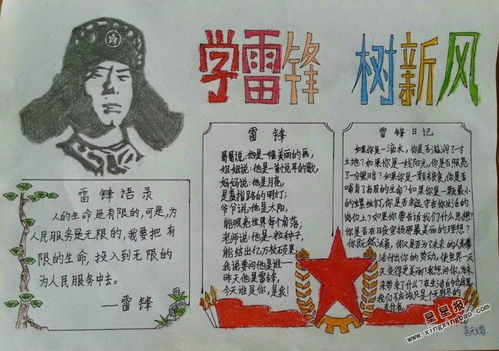 学雷锋 树新风
雷锋语录
人的生命是有限的,可是,为
人民服务是无限的,我要把有
限的生命,投入到无限的
为人民服务中去。
——雷锋
雷锋
哥哥说:他是一幅美丽的画,
姐姐说:他是一首优美的歌,
妈妈说:他是月亮,
是盏指路的明灯;
爷爷说:他是太阳,
能照亮世界每个角落;
老师说:他是一粒种子,
能结出亿万枚硕果。
我说要问他是谁——
昨天他是雷锋,
今天是你,是我!
雷锋日记
如果你是一滴水,你是否滋润了一寸
土地?如果你是一线阳光,你是否照亮
了一分黑暗?如果你是一颗粮食,你是否
哺育了有用的生命?如果你是一颗最小
的螺丝钉,你是否永远守在你生活的
岗位上?如果你要告诉我们什么思想?
你是否在日夜宣扬那最美丽的理想?
你既然活着,你又是否为了未来的人类
付出你的劳动,使世界一天
天变得更美丽?我想问你,为未
来带来了什么?在生活的仓库里,
我们不应该只是个无穷尽的
支付者。
星星报
www.xingxingbao.com